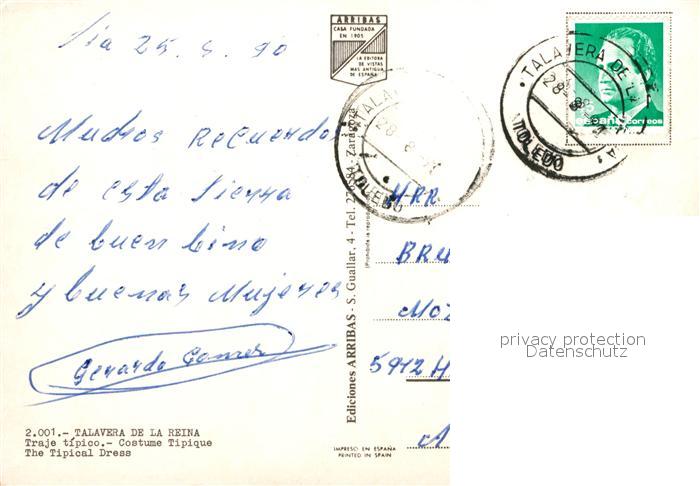 Dia 25.
90
ARRIBAS
CASA FUNDADA
EN 1905
LA EDITORA
DE VISTAS
MAS ANTIGUA
DE ESPAÑA
TALAVERA DE LA
28
TOLEDO
ESPAÑA CORREOS
TALA
28
TOLEDO
Muchos Recuerdos
de esta tierra
de buen bino
y buenas Mujeres
Gerardo Gomez
2.001.- TALAVERA DE LA REINA
Traje típico.- Costume Tipique
The Tipical Dress
Ediciones ARRIBAS - S. Guallar, 4 - Tel. Zaragoza
(Prohibida la
IMPRESO EN ESPAÑA
PRINTED IN SPAIN
HRR
BRU
5912 H
privacy protection
Datenschutz